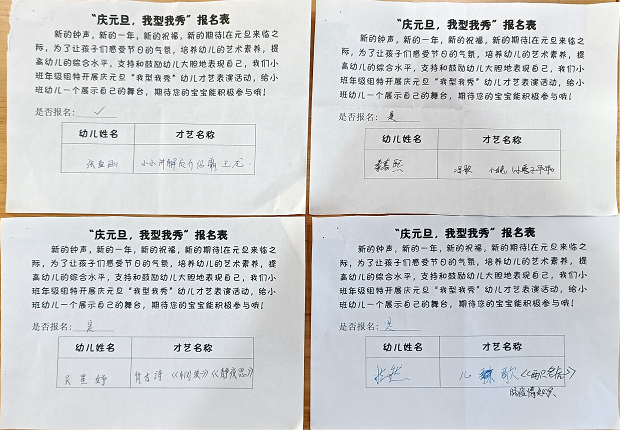 “庆元旦，我型我秀”报名表
新的钟声，新的一年，新的祝福，新的期待!在元旦来临之
际，为了让孩子们感受节日的气氛，培养幼儿的艺术素养，提
高幼儿的综合水平，支持和鼓励幼儿大胆地表现自己，我们小
班年级组特开展庆元旦“我型我秀”幼儿才艺表演活动，给小
班幼儿一个展示自己的舞台，期待您的宝宝能积极参与哦!
是否报名：✓
幼儿姓名 才艺名称
小小讲解员介绍霸王龙
“庆元旦，我型我秀”报名表
新的钟声，新的一年，新的祝福，新的期待!在元旦来临之
际，为了让孩子们感受节日的气氛，培养幼儿的艺术素养，提
高幼儿的综合水平，支持和鼓励幼儿大胆地表现自己，我们小
班年级组特开展庆元旦“我型我秀”幼儿才艺表演活动，给小
班幼儿一个展示自己的舞台，期待您的宝宝能积极参与哦!
是否报名：是
幼儿姓名 才艺名称
“庆元旦，我型我秀”报名表
新的钟声，新的一年，新的祝福，新的期待!在元旦来临之
际，为了让孩子们感受节日的气氛，培养幼儿的艺术素养，提
高幼儿的综合水平，支持和鼓励幼儿大胆地表现自己，我们小
班年级组特开展庆元旦“我型我秀”幼儿才艺表演活动，给小
班幼儿一个展示自己的舞台，期待您的宝宝能积极参与哦!
是否报名：是
幼儿姓名 才艺名称
吴星妤 背古诗《悯农》《静夜思》
“庆元旦，我型我秀”报名表
新的钟声，新的一年，新的祝福，新的期待!在元旦来临之
际，为了让孩子们感受节日的气氛，培养幼儿的艺术素养，提
高幼儿的综合水平，支持和鼓励幼儿大胆地表现自己，我们小
班年级组特开展庆元旦“我型我秀”幼儿才艺表演活动，给小
班幼儿一个展示自己的舞台，期待您的宝宝能积极参与哦!
是否报名：是
幼儿姓名 才艺名称
儿歌《两只老虎》